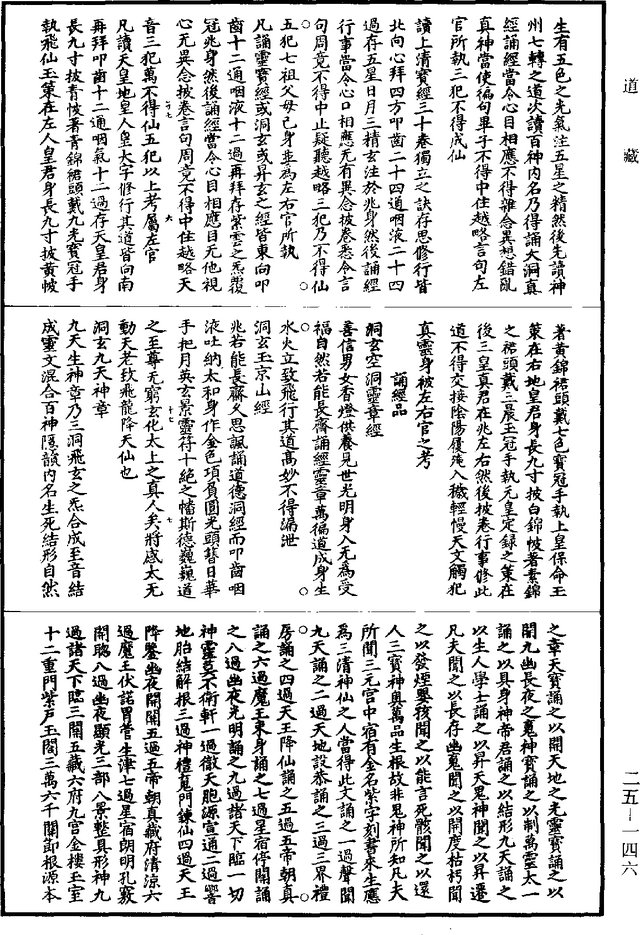 道藏
生有五色之光氣注五星之精然後先讀神
州七轉之道次讀百神內名乃得誦大洞真
經誦經當令心目相應不得雜念異想錯亂
真神當使徧句畢子不得中住越略言句左
官所執三犯不得成仙
讀上清寶經三十卷獨立之訣存思修行皆
北向心拜四方叩齒二十四通咽液二十四
過存五星日月三精玄注於兆身然後誦經
行事當令心口相應无有異念披卷悉令言
句周竟不得中止疑聽越略三犯乃不得仙
五犯七祖父母己身並為左右官所執
凡誦靈寶經或洞玄或昇玄之經皆東向叩
齒十二通咽液十二過再拜存紫雲之炁覆
冠兆身然後誦經當令心目相應目无他視
心无異念披卷言句周竟不得中住越略天
音三犯萬不得仙五犯以上考屬左官
十七 六
凡讀天皇地皇人皇大字修行其道皆向南
再拜叩齒十二通咽氣十二過存天皇君身
長九寸披青帔著青錦裙頭戴九光寶冠手
執飛仙玉策在左人皇君身長九寸披黃帔
著黃錦裙頭戴七色寶冠手執上皇保命玉
策在右地皇君身長九寸披白錦帔著素錦
之裙頭戴三晨玉冠手執元皇定錄之策在
後三皇真君在兆左右然後披卷行事修此
道不得交接陰陽履淹入穢輕慢天文觸犯
真靈身被左右官之考
誦經品
洞玄空洞靈章經
善信男女香燈供養見世光明身入无為受
福自然若能長齋誦經靈章萬徧道成身生
水火立致飛行其道高妙不得漏泄
洞玄玉京山經
兆若能長齋久思諷誦道德洞經而叩齒咽
液吐納太和身作金色項負圓光頭簪日華
手把月英玄景靈符十絕之幡斯德巍巍道
十七 七
之至尊无窮玄化太上之真人矣將感太无
動天老致飛龍降天仙也
洞玄九天神章
九天生神章乃三洞飛玄之炁合成至音結
成靈文混合百神隱韻內名生死結形自然
之章天寶誦之以開天地之光靈寶誦之以
開九幽長夜之䰟神寶誦之以制萬靈太一
誦之以具身神帝君誦之以結形九天誦之
以生人學士誦之以昇天鬼神聞之以昇遷
凡夫聞之以長存幽䰟聞之以開度枯朽聞
之以發煙嬰孩聞之以能言死骸聞之以還
人三寶神奧萬品生根故非鬼神所知凡夫
所聞三元宮中宿有金名紫字刻書來生應
為三清神仙之人當得此文誦之一過聲聞
九天誦之二過天地設恭誦之三過三界禮
房誦之四過天王降仙誦之五過五帝朝真
誦之六過魔王束身誦之七過星宿停關誦
之八過幽夜光明誦之九過諸天下臨一切
神靈莫不衛軒一過徹天胞源宣通二過響
地胎結解根三過神禮䰟門鍊仙四過天王
降鑒幽夜開關五過五帝朝真藏府清涼六
過魔王伏諾胃管生津七過星宿朗明孔竅
開聰八過幽夜顯光三部八景整具形神九
過諸天下臨三關五藏六府九宮金樓玉室
十二重門紫戶玉閣三萬六千關節根源本
二五—一四六